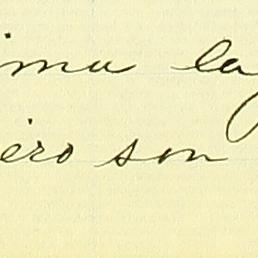 ima la
ero son